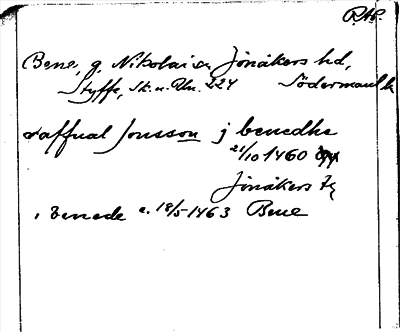 RAP.
Bene, g. Nikolai sn Jönåkers hd,
Styffe, Sk. u. Un. 224 Södermanl
raffual Jonsson j benedhe
21/10 1460
Jönåkers hd
i benede e. 18/5 1463 Bene